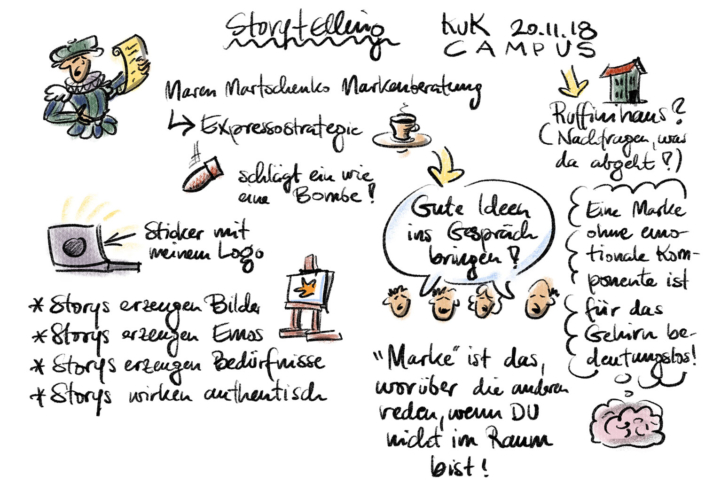 Storytelling
KuK 20.11.18
CAMPUS
Maren Martschenko Markenberatung
Expressostrategie
schlägt ein wie
eine Bombe!
Ruffinihaus?
(Nachfragen, was
da abgeht?)
Gute Ideen
ins Gespräch
bringen?
Sticker mit
meinem Logo
* Storys erzeugen Bilder
* Storys erzeugen Emos
* Storys erzeugen Bedürfnisse
* Storys wirken authentisch
"Marke" ist das,
worüber die anderen
reden, wenn DU
nicht im Raum
bist!
Eine Marke
ohne emo-
tionale Kom-
ponente ist
für das
Gehirn be-
deutungslos!